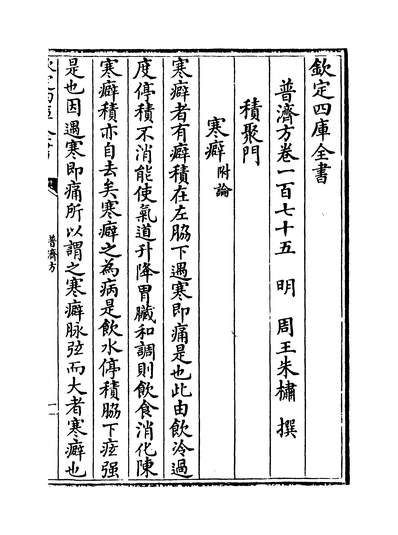 欽定四庫全書
普濟方卷一百七十五 明 周王朱橚 撰
積聚門
寒癖附論
寒癖者有癖積在左脇下遇寒即痛是也此由飲冷過
度停積不消能使氣道升降胃臟和調則飲食消化陳
寒癖積亦自去矣寒癖之為病是飲水停積脇下痃强
是也因遇寒即痛所以謂之寒癖脉弦而大者寒癖也
普濟方
一